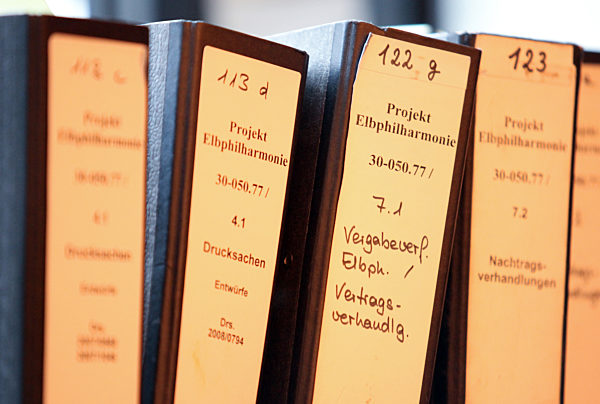 113 c
Projekt
Elbphilharmonie
30-050.77 /
4.1
Drucksachen
Entwürfe
Drs.
113 d
Projekt
Elbphilharmonie
30-050.77 /
4.1
Drucksachen
Entwürfe
Drs.
2008/0794
122 g
Projekt
Elbphilharmonie
30-050.77 /
7.1
Vergabeverf.
Elbph. /
Vertrags-
verhandlg.
123
Projekt
Elbphilharmonie
30-050.77 /
7.2
Nachtrags-
verhandlungen